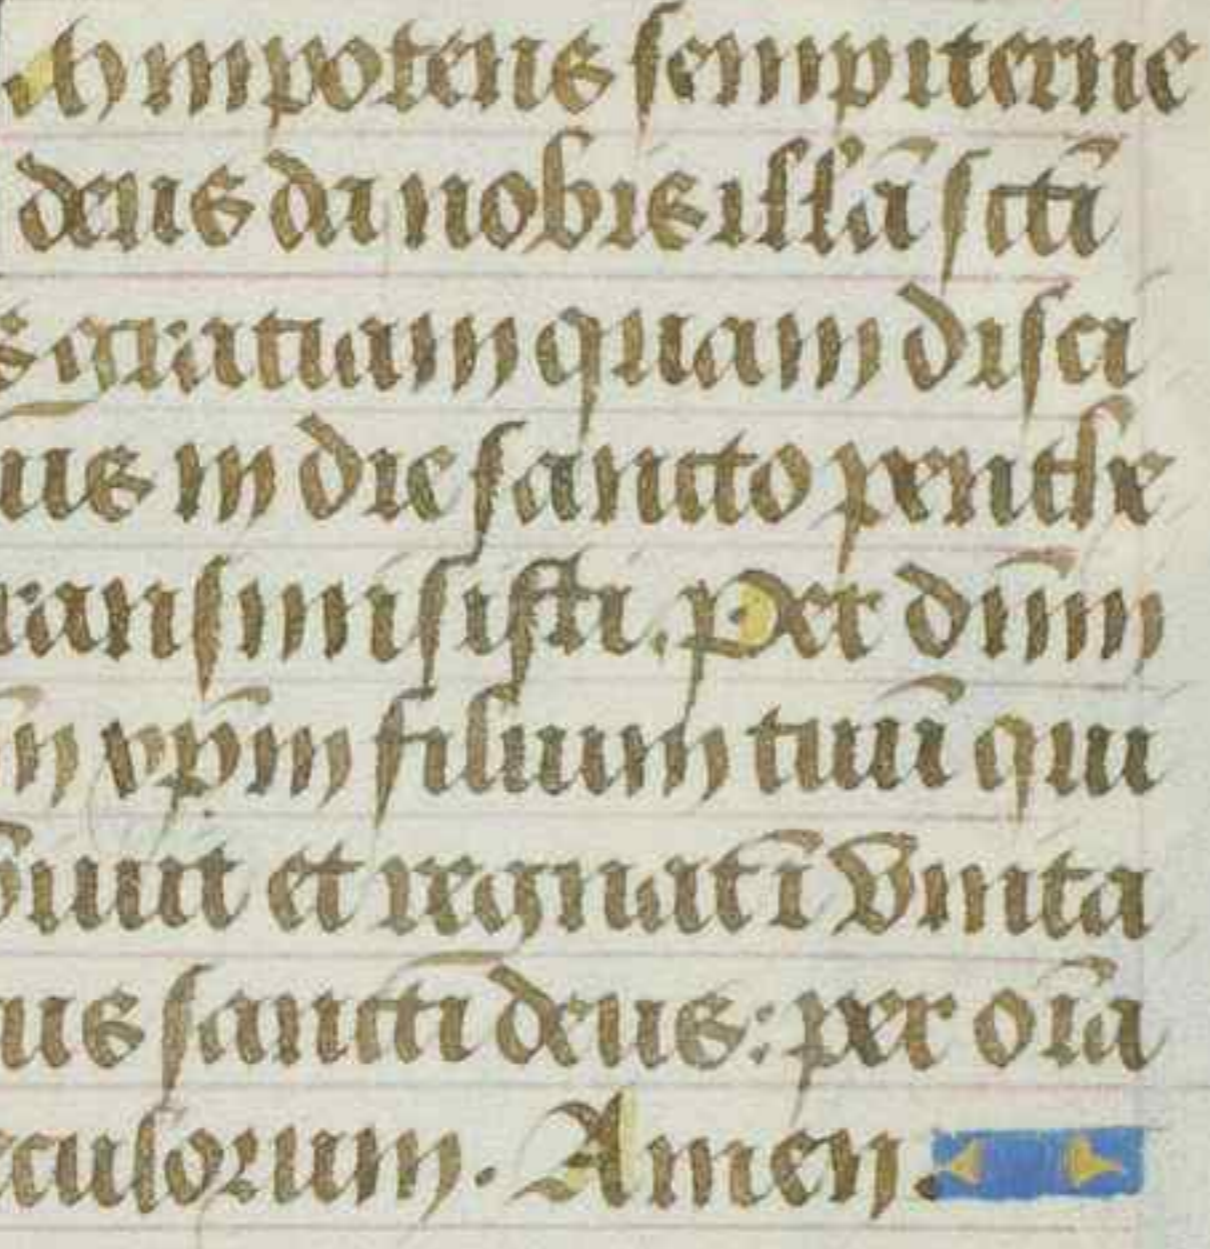 mpotens sempiterne
deus da nobis illā scti
s gratiam quam disci
us in die sancto penthe
ransmisisti. Per dnm̄
n xp̄m filium tuū qui
viuit et regnat ī vnita
us sancti deus: per oīa
eculorum. Amen.